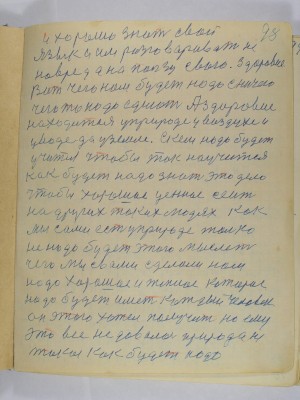 98
и хорошо знать свой
язык и им разговаривать не
на пользу своего. Здоровие
Вот чего нам будет надо
чего то надо А здоровие
находится у природе у воздухе и
у воде да у земле. С кем надо будет
учится чтобы так научится
как будет надо знать это дело
чтобы хорошое ценное
на других таких людях как
мы сами есть природе только
не надо будет этого мыслить
чего мы с вами сделали нам
надо хорошое и теплое которое
надо будет иметь каждый человек
он этого хотел получить но ему
это все не довала природа не
такая как будет надо